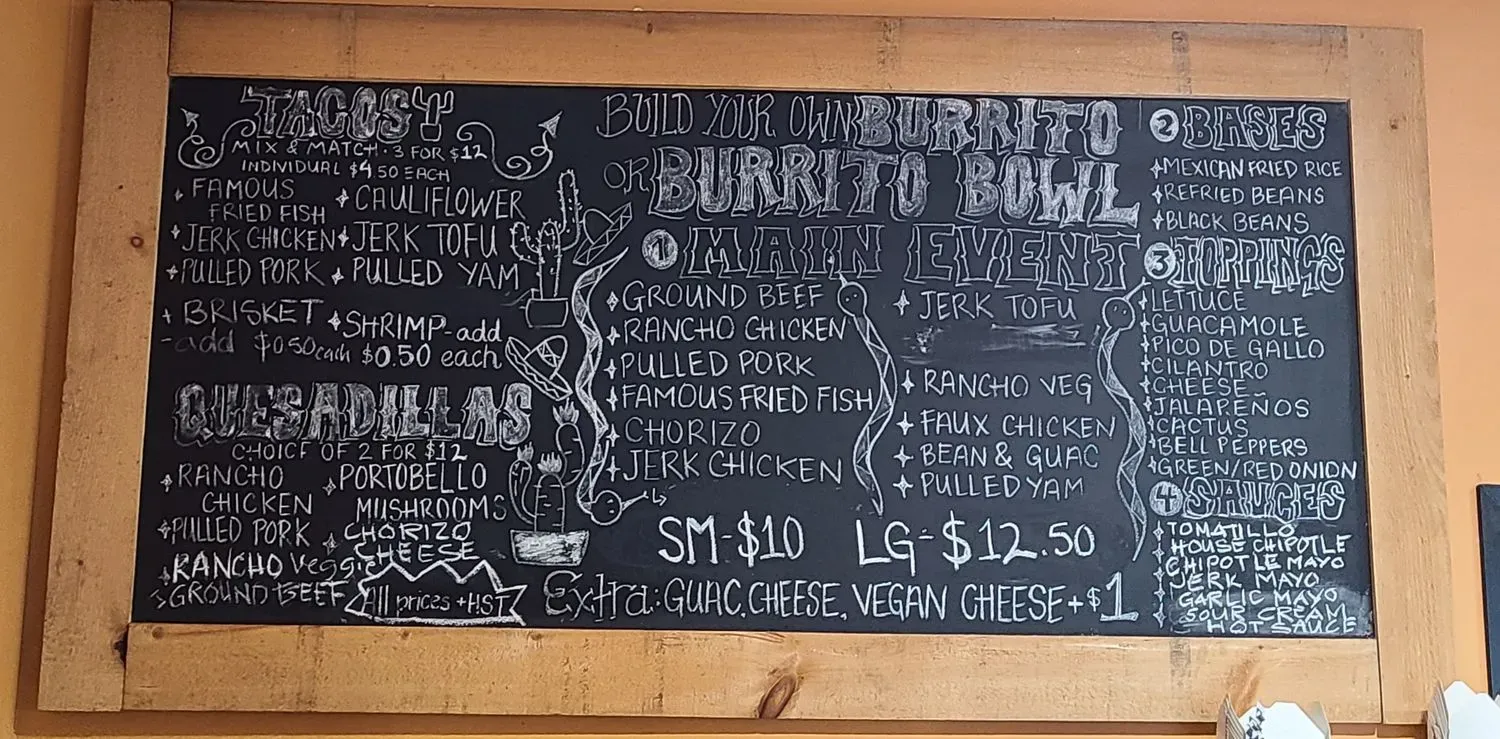 TACOS
MIX & MATCH · 3 FOR $12
INDIVIDUAL $4.50 EACH
FAMOUS
FRIED FISH
JERK CHICKEN
PULLED PORK
BRISKET
-add $0.50 each
CAULIFLOWER
JERK TOFU
PULLED YAM
SHRIMP-add
$0.50 each
QUESADILLAS
CHOICE OF 2 FOR $12
RANCHO
CHICKEN
PULLED PORK
RANCHO Veggie
GROUND BEEF
PORTOBELLO
MUSHROOMS
CHORIZO
CHEESE
All prices +HST
BUILD YOUR OWN BURRITO
OR BURRITO BOWL
1 MAIN EVENT
GROUND BEEF
RANCHO CHICKEN
PULLED PORK
FAMOUS FRIED FISH
CHORIZO
JERK CHICKEN
JERK TOFU
RANCHO VEG
FAUX CHICKEN
BEAN & GUAC
PULLED YAM
SM-$10 LG-$12.50
Extra: GUAC, CHEESE, VEGAN CHEESE +$1
2 BASES
MEXICAN FRIED RICE
REFRIED BEANS
BLACK BEANS
3 TOPPINGS
LETTUCE
GUACAMOLE
PICO DE GALLO
CILANTRO
CHEESE
JALAPEÑOS
CACTUS
BELL PEPPERS
GREEN/RED ONION
4 SAUCES
TOMATILLO
HOUSE CHIPOTLE
CHIPOTLE MAYO
JERK MAYO
GARLIC MAYO
SOUR CREAM
HOT SAUCE